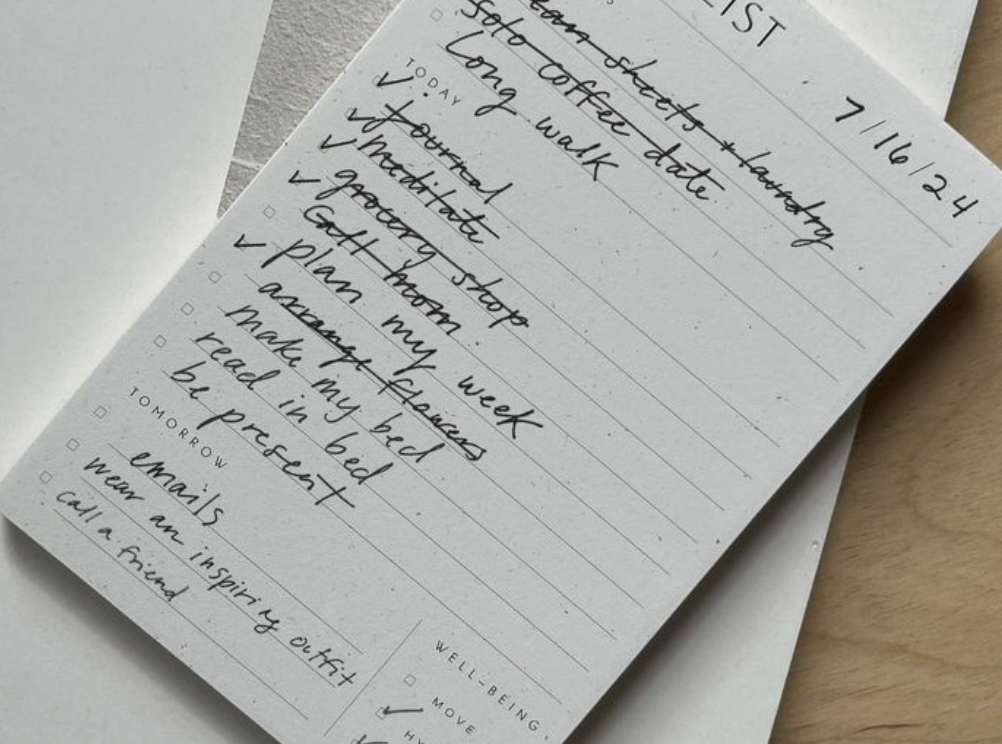 LIST
7/16/24
sheets + laundry
solo coffee date
Long walk
TODAY
journal
meditate
grocery shop
Call mom
plan my week
arrange flowers
make my bed
read in bed
be present
TOMORROW
emails
wear an inspiring outfit
call a friend
WELL-BEING
MOVE